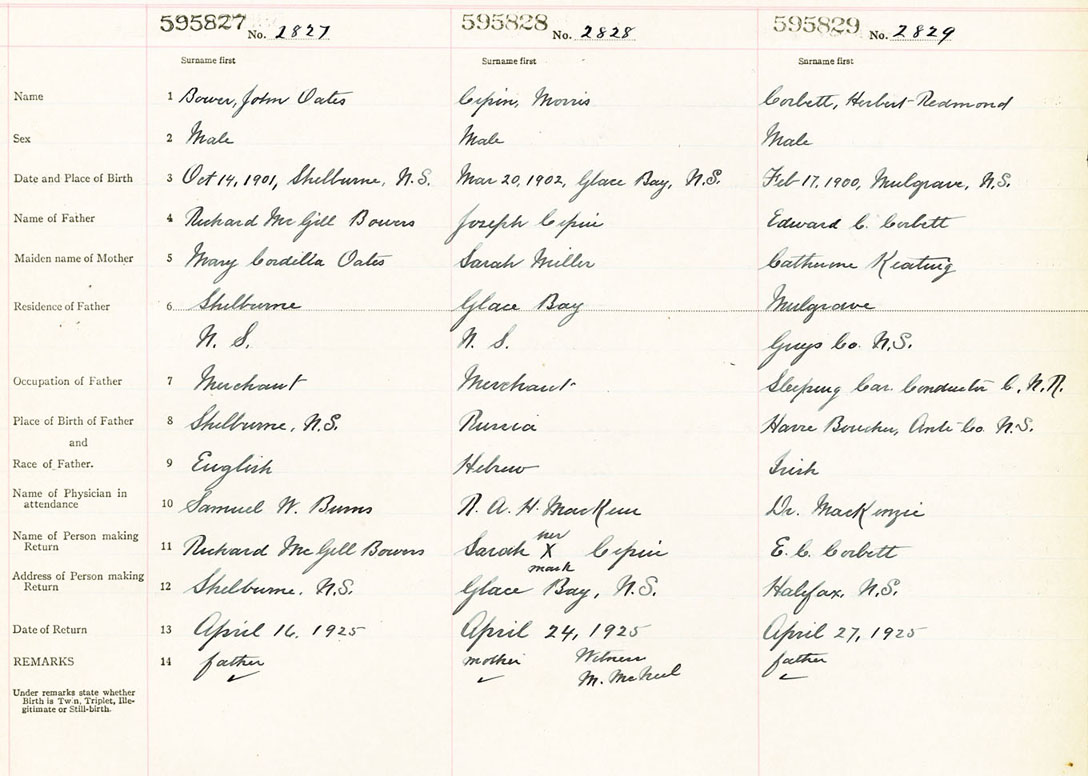 595827 No. 2827 595828 No. 2828 595829 No. 2829
Surname first Surname first Surname first
Name 1 Bower, John Oates Cipin, Morris Corbett, Herbert Redmond
Sex 2 Male Male Male
Date and Place of Birth 3 Oct 14, 1901, Shelburne, N.S. Mar 20, 1902, Glace Bay, N.S. Feb 17, 1900, Mulgrave, N.S.
Name of Father 4 Richard McGill Bowers Joseph Cipin Edward C. Corbett
Maiden name of Mother 5 Mary Cordilla Oates Sarah Miller Catherine Keating
Residence of Father 6 Shelburne Glace Bay Mulgrave
N. S. N. S. Guys Co. N.S.
Occupation of Father 7 Merchant Merchant Sleeping Car Conductor C.N.R.
Place of Birth of Father 8 Shelburne, N.S. Russia Havre Boucher, Anti Co. N.S.
and
Race of Father. 9 English Hebrew Irish
Name of Physician in
attendance 10 Samuel W. Burns R. A. H. MacKeen Dr. MacKenzie
Name of Person making
Return 11 Richard McGill Bowers Sarah her X mark Cipin E. C. Corbett
Address of Person making
Return 12 Shelburne, N.S. Glace Bay, N.S. Halifax, N.S.
Date of Return 13 April 16, 1925 April 24, 1925 April 27, 1925
REMARKS 14 father mother Witness father
M. McNeil
Under remarks state whether
Birth is Twin, Triplet, Ille-
gitimate or Still-birth.